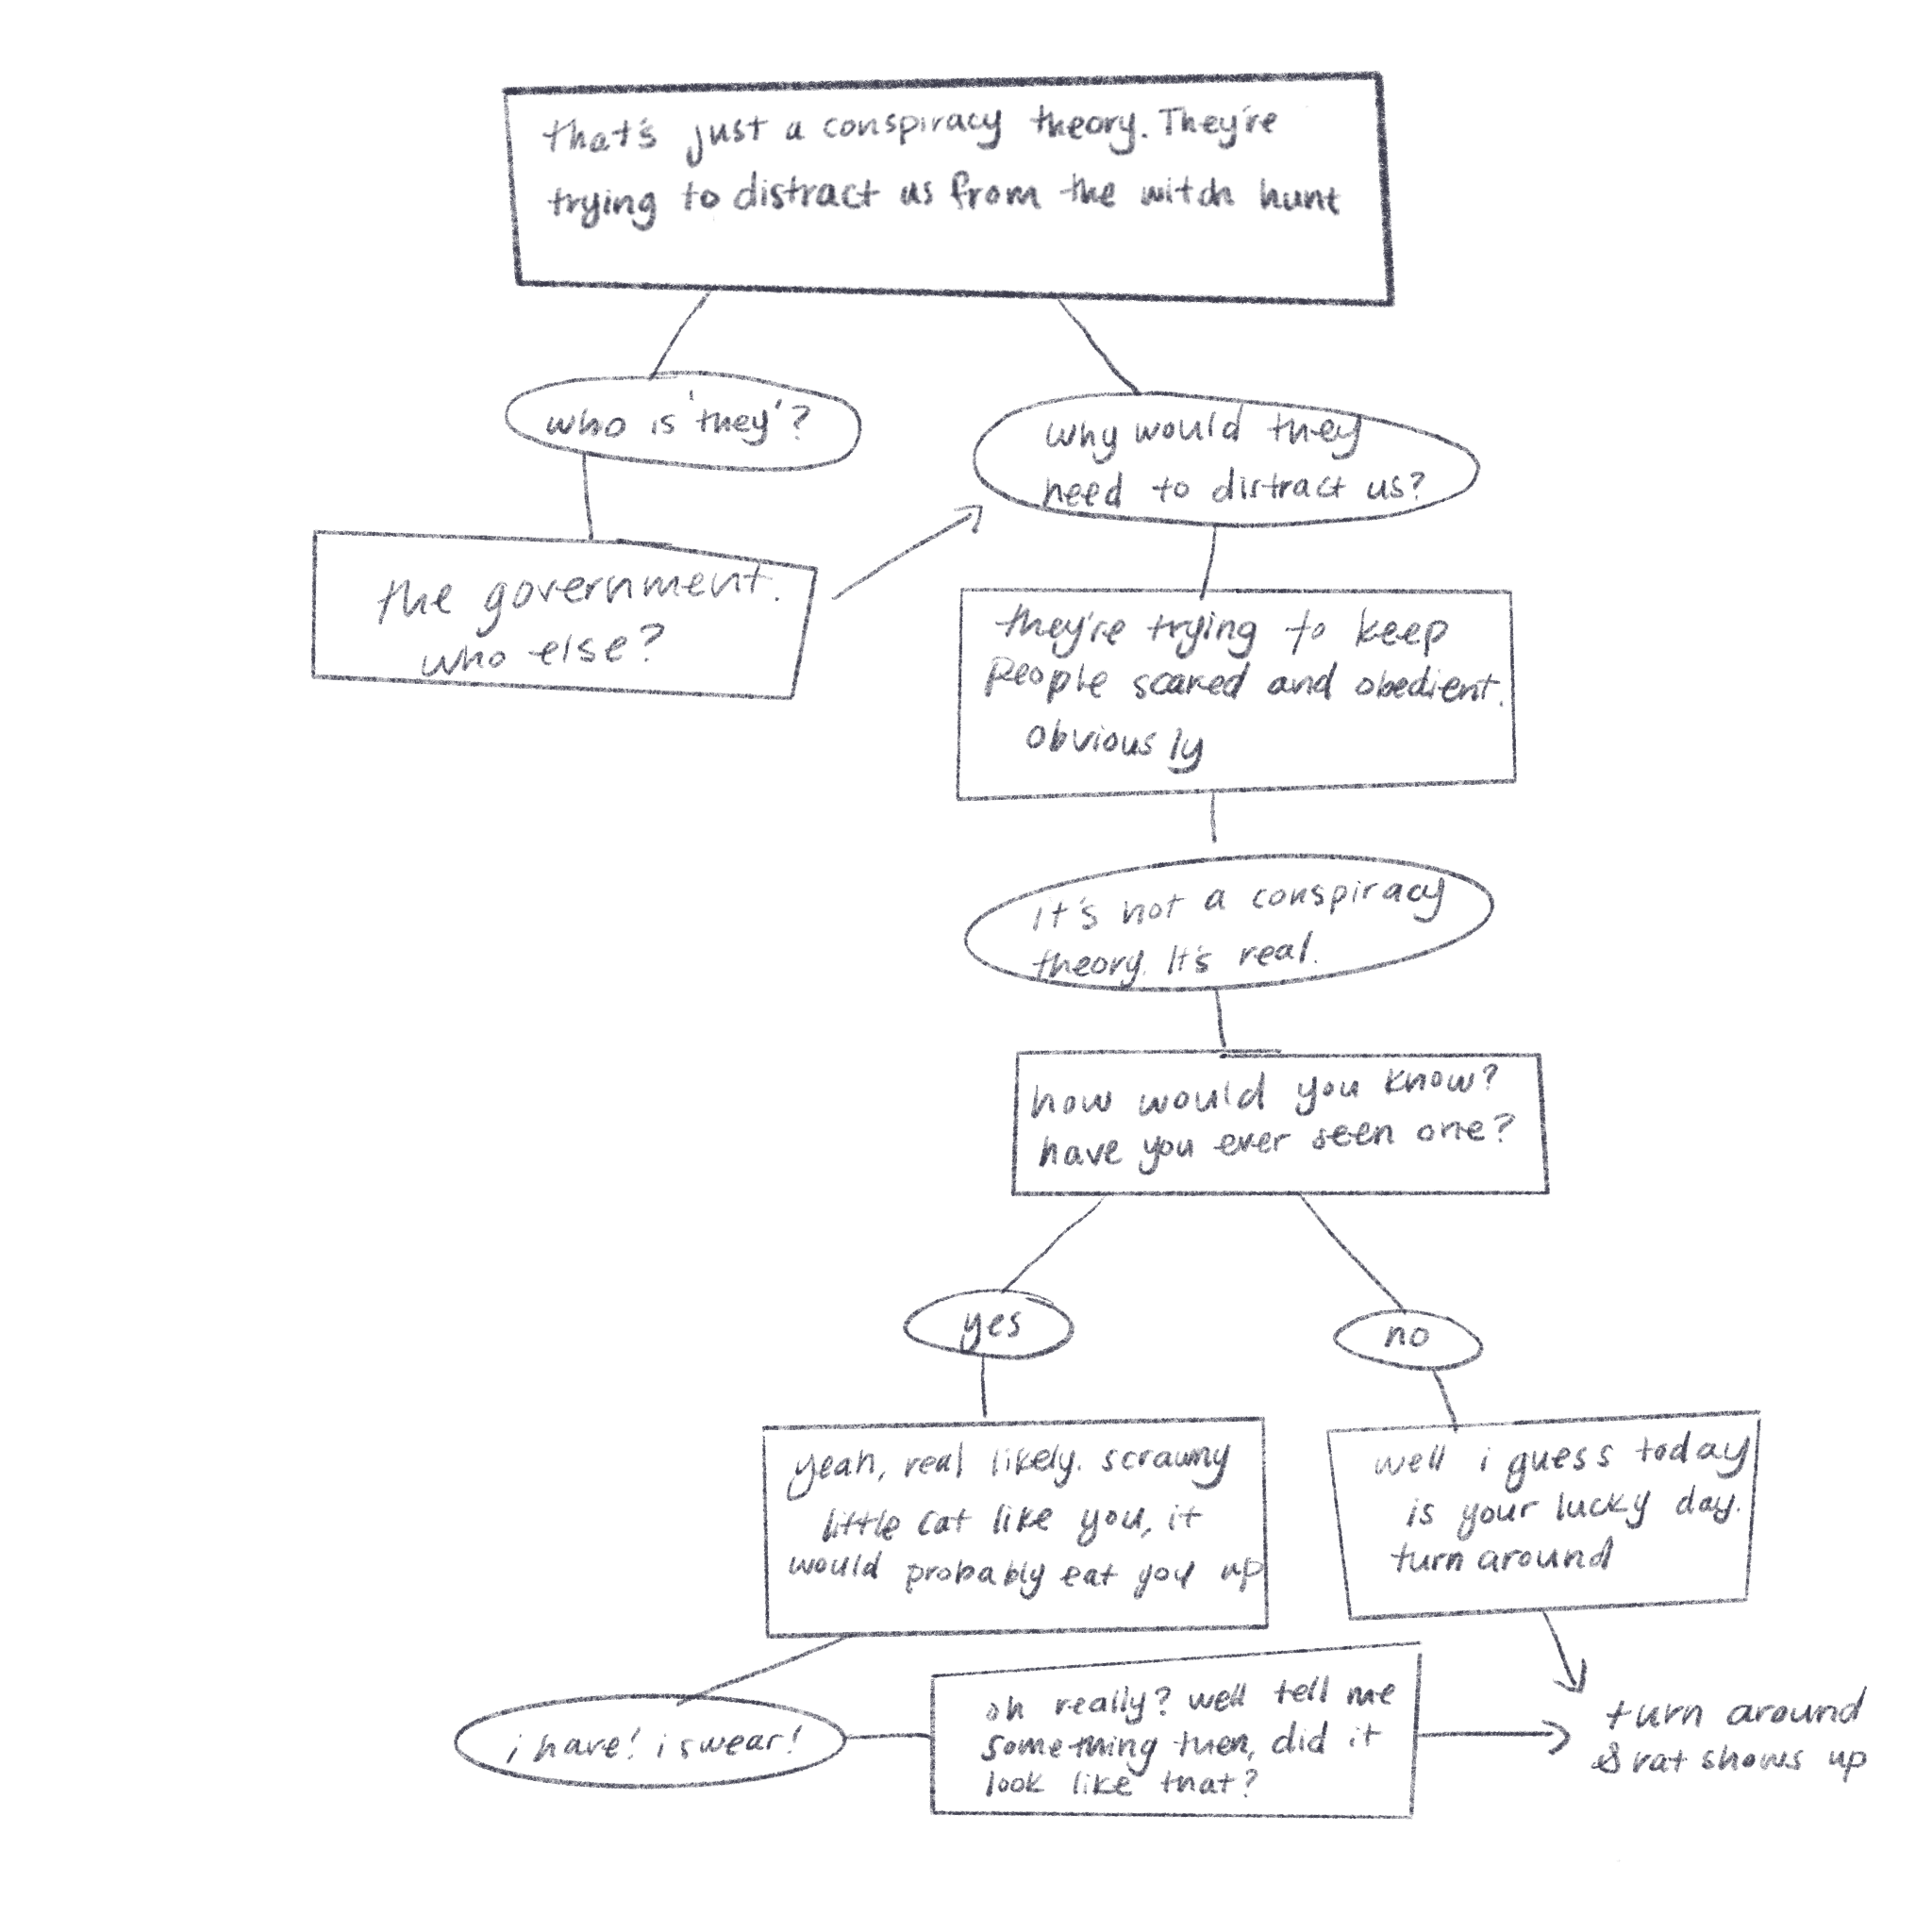 that's just a conspiracy theory. They're
trying to distract us from the witch hunt
who is 'they'?
why would they
need to distract us?
the government.
who else?
they're trying to keep
people scared and obedient.
obviously
it's not a conspiracy
theory. It's real.
how would you know?
have you ever seen one?
yes
no
yeah, real likely. scrawny
little cat like you, it
would probably eat you up
well i guess today
is your lucky day.
turn around
i have! i swear!
oh really? well tell me
something then, did it
look like that?
turn around
& rat shows up